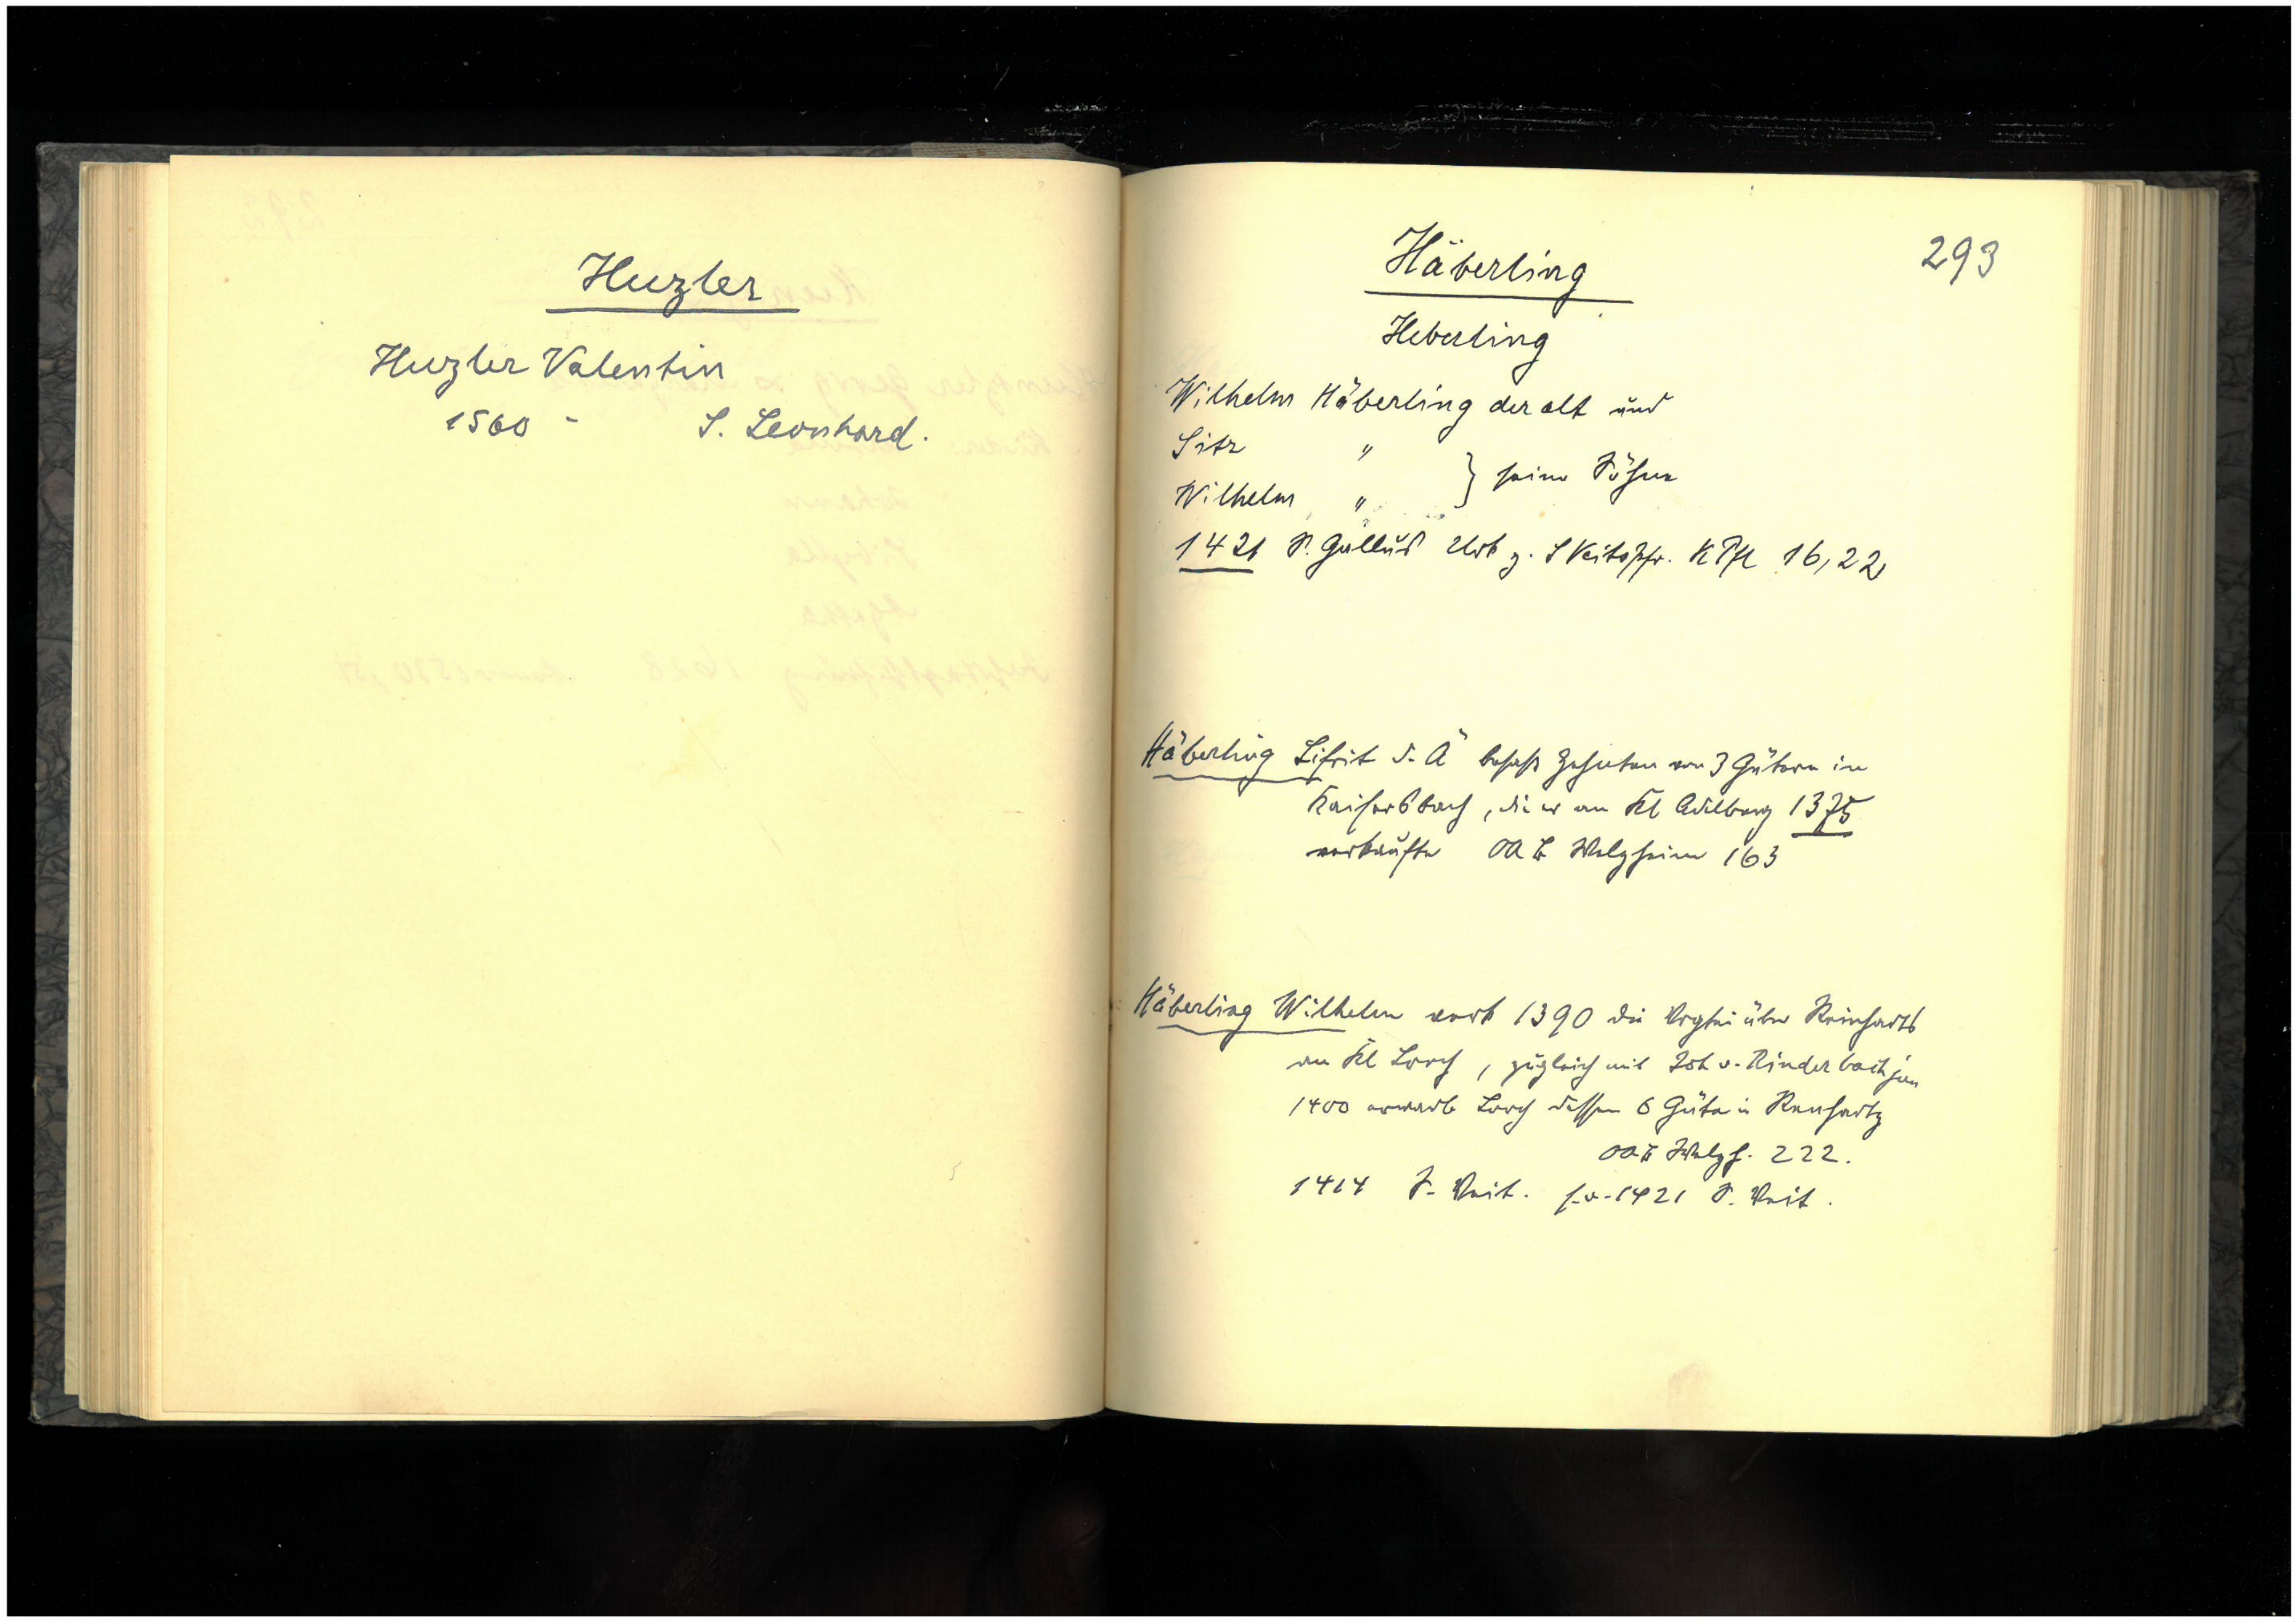 Huzler
Huzler Valentin
1560 - S. Leonhard.
293
Häberling
Heberling
Wilhelm Häberling der alt und
Sitz "
Wilhelm " } seine Söhne
1421 S. Gallus Urk z. S Veitspfr. K Pfl 16,22
Häberling Sifrit d. Ä besass Zehnten von 3 Gütern in
Kaisersbach, die er an Kl Adelberg 1375
verkaufte OAB Welzheim 163
Häberling Wilhelm verk 1390 die Vogtei über Reinharts
an Kl Lorch, zugleich mit Joh v. Rinderbach jun
1400 erwarb Lorch dessen 6 Güter in Renhartz
OAB Welzh. 222.
1414 S. Veit. s.o. 1421 S. Veit.